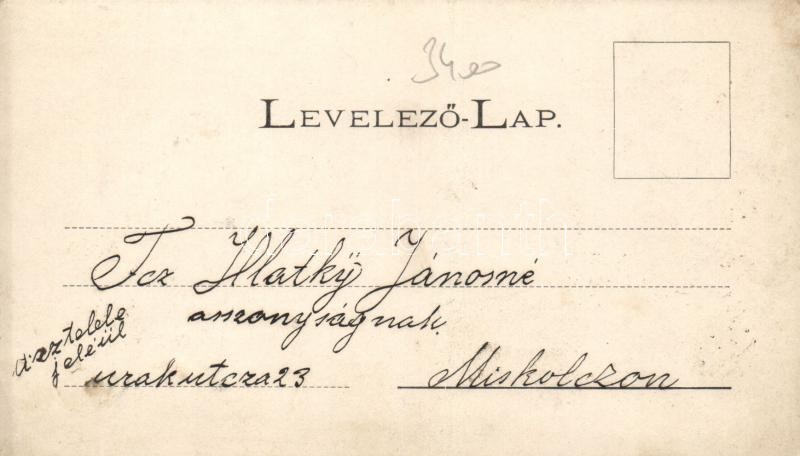 3400
LEVELEZŐ-LAP.
Tcz Hlatkÿ Jánosné
asszonyságnak
tisztelete
jeléül
urak utcza 23
Miskolczon